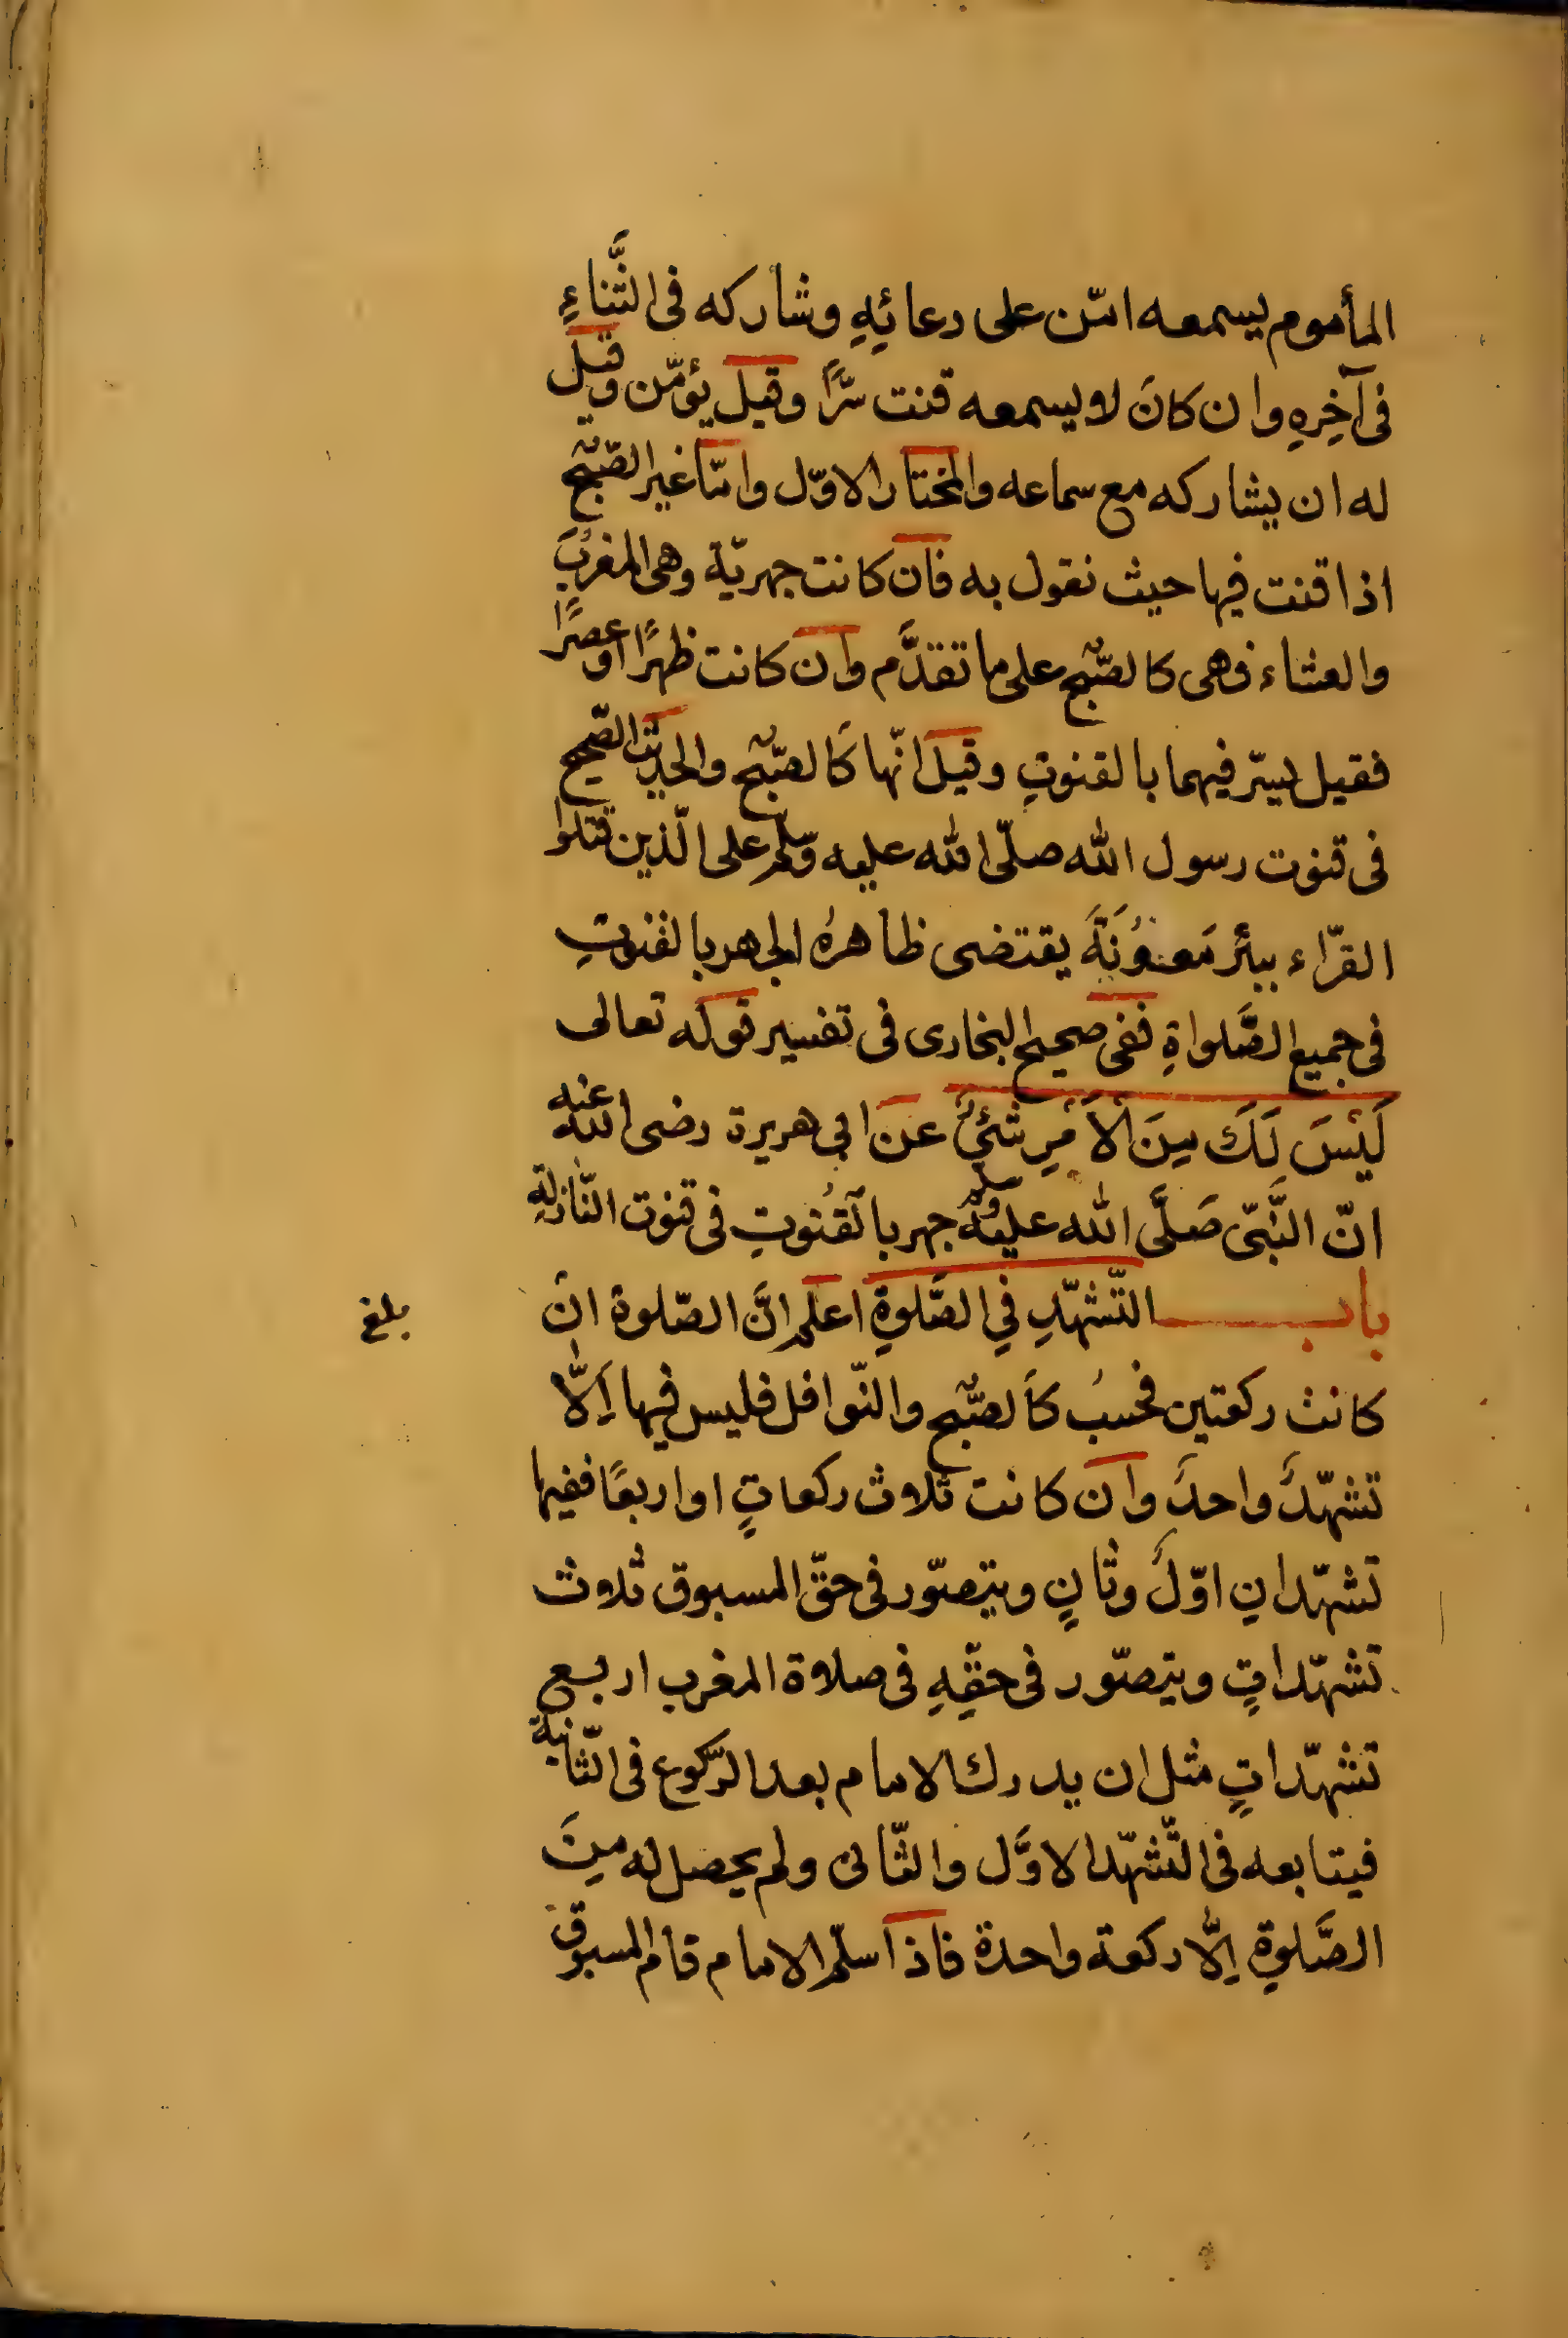 المأموم يسمعه امّن على دعائِهِ وشاركه فى الثَّناءِ
فى آخِرِهِ وان كانَ لا يسمعه قنت سرًّا وقيل يؤمّن وقيل
له ان يشاركه مع سماعه والمختار الاوّل وامّا غير الصّبح
اذا قنت فيها حيث نقول به فان كانت جهريّة وهى المغربُ
والعشاء فهى كالصّبح على ما تقدَّم وان كانت ظهرًا او عصرًا
فقيل يسرّ فيهما بالقنوتِ وقيل انّها كالصّبح والحديث الصّحيح
فى قنوت رسول الله صلّى الله عليه وسلّم على الّذين قتلوا
القرّاء ببئر مَعُونَةَ يقتضى ظاهرهُ الجهر بالقنوتِ
فى جميع الصَّلواةِ ففى صحيح البخارى فى تفسير قوله تعالى
لَيْسَ لَكَ مِنَ الْاَمْرِ شَئٌ عن ابى هريرة رضى الله عنه
انّ النَّبىّ صَلَّى الله عليه وسلّم جهر بالقُنوتِ فى قنوت النّازلةِ
باب التّشهّدِ فِي الصَّلوةِ اعلم انَّ الصّلوة ان
كانت ركعتين فحسبُ كالصّبح والنّوافل فليس فيها اِلَّا
تشهّدٌ واحدٌ وان كانت ثلاث ركعاتٍ او اربعًا ففيها
تشهّدانِ اوّلٌ وثانٍ ويتصوّر فى حقّ المسبوق ثلاث
تشهّداتٍ ويتصوّر فى حقّهِ فى صلاة المغرب اربع
تشهّداتٍ مثل ان يدرك الامام بعد الرّكوع فى الثّانية
فيتابعه فى التّشهّد الاوَّل والثّانى ولم يحصل له مِنَ
الصَّلوةِ اِلَّا ركعة واحدة فاذا سلّم الامام قام المسبوق
بلغ